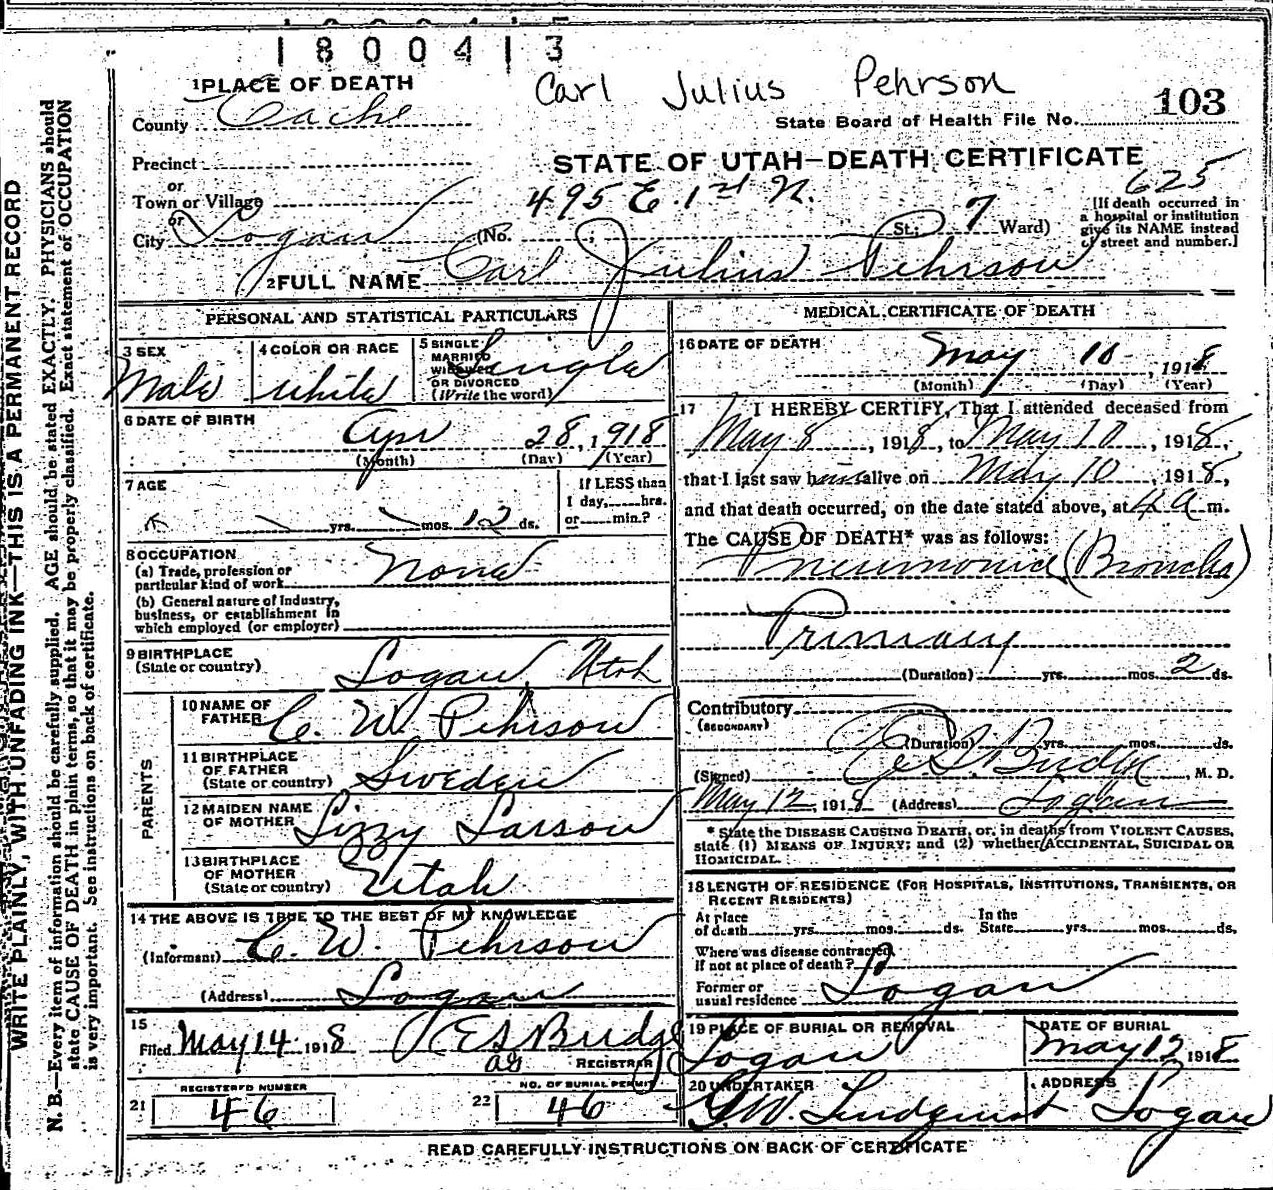 1800413
Carl Julius Pehrson
1 PLACE OF DEATH
County Cache
103
State Board of Health File No.
Precinct
STATE OF UTAH—DEATH CERTIFICATE
or
Town or Village
495 E. 1st N.
625
or
City Logan (No. St; 7 Ward)
[If death occurred in
a hospital or institution
give its NAME instead
of street and number.]
2 FULL NAME Carl Julius Pehrson
PERSONAL AND STATISTICAL PARTICULARS
3 SEX
Male
4 COLOR OR RACE
White
5 SINGLE
MARRIED
WIDOWED
OR DIVORCED
(Write the word)
Single
6 DATE OF BIRTH
Apr 28, 1918
(Month) (Day) (Year)
7 AGE
yrs. mos. 12 ds.
If LESS than
1 day, hrs.
or min.?
8 OCCUPATION
(a) Trade, profession or
particular kind of work
None
(b) General nature of Industry,
business, or establishment in
which employed (or employer)
9 BIRTHPLACE
(State or country)
Logan, Utah
PARENTS
10 NAME OF
FATHER
C. W. Pehrson
11 BIRTHPLACE
OF FATHER
(State or country)
Sweden
12 MAIDEN NAME
OF MOTHER
Lizzy Larson
13 BIRTHPLACE
OF MOTHER
(State or country)
Utah
14 THE ABOVE IS TRUE TO THE BEST OF MY KNOWLEDGE
(Informant) C. W. Pehrson
(Address) Logan
15
Filed May 14 1918 E S Budge
REGISTRAR
REGISTERED NUMBER
21 46
NO. OF BURIAL PERMIT
22 46
MEDICAL CERTIFICATE OF DEATH
16 DATE OF DEATH
May 10, 1918
(Month) (Day) (Year)
17 I HEREBY CERTIFY, That I attended deceased from
May 8, 1918, to May 10, 1918,
that I last saw him alive on May 10, 1918,
and that death occurred, on the date stated above, at 4 a m.
The CAUSE OF DEATH* was as follows:
Pneumonia (Broncho)
Primary
(Duration) yrs. mos. 2 ds.
Contributory
(SECONDARY)
(Duration) yrs. mos. ds.
(Signed) E S Budge, M. D.
May 12, 1918 (Address) Logan
* State the DISEASE CAUSING DEATH, or, in deaths from VIOLENT CAUSES,
state (1) MEANS OF INJURY; and (2) whether ACCIDENTAL, SUICIDAL OR
HOMICIDAL.
18 LENGTH OF RESIDENCE (FOR HOSPITALS, INSTITUTIONS, TRANSIENTS, OR
RECENT RESIDENTS)
At place
of death yrs. mos. ds.
In the
State yrs. mos. ds.
Where was disease contracted,
If not at place of death?
Former or
usual residence Logan
19 PLACE OF BURIAL OR REMOVAL
Logan
DATE OF BURIAL
May 12 1918
20 UNDERTAKER
G.W. Lindquist
ADDRESS
Logan
READ CAREFULLY INSTRUCTIONS ON BACK OF CERTIFICATE
WRITE PLAINLY, WITH UNFADING INK—THIS IS A PERMANENT RECORD
N. B.—Every item of information should be carefully supplied. AGE should be stated EXACTLY. PHYSICIANS should
state CAUSE OF DEATH in plain terms, so that it may be properly classified. Exact statement of OCCUPATION
is very important. See instructions on back of certificate.